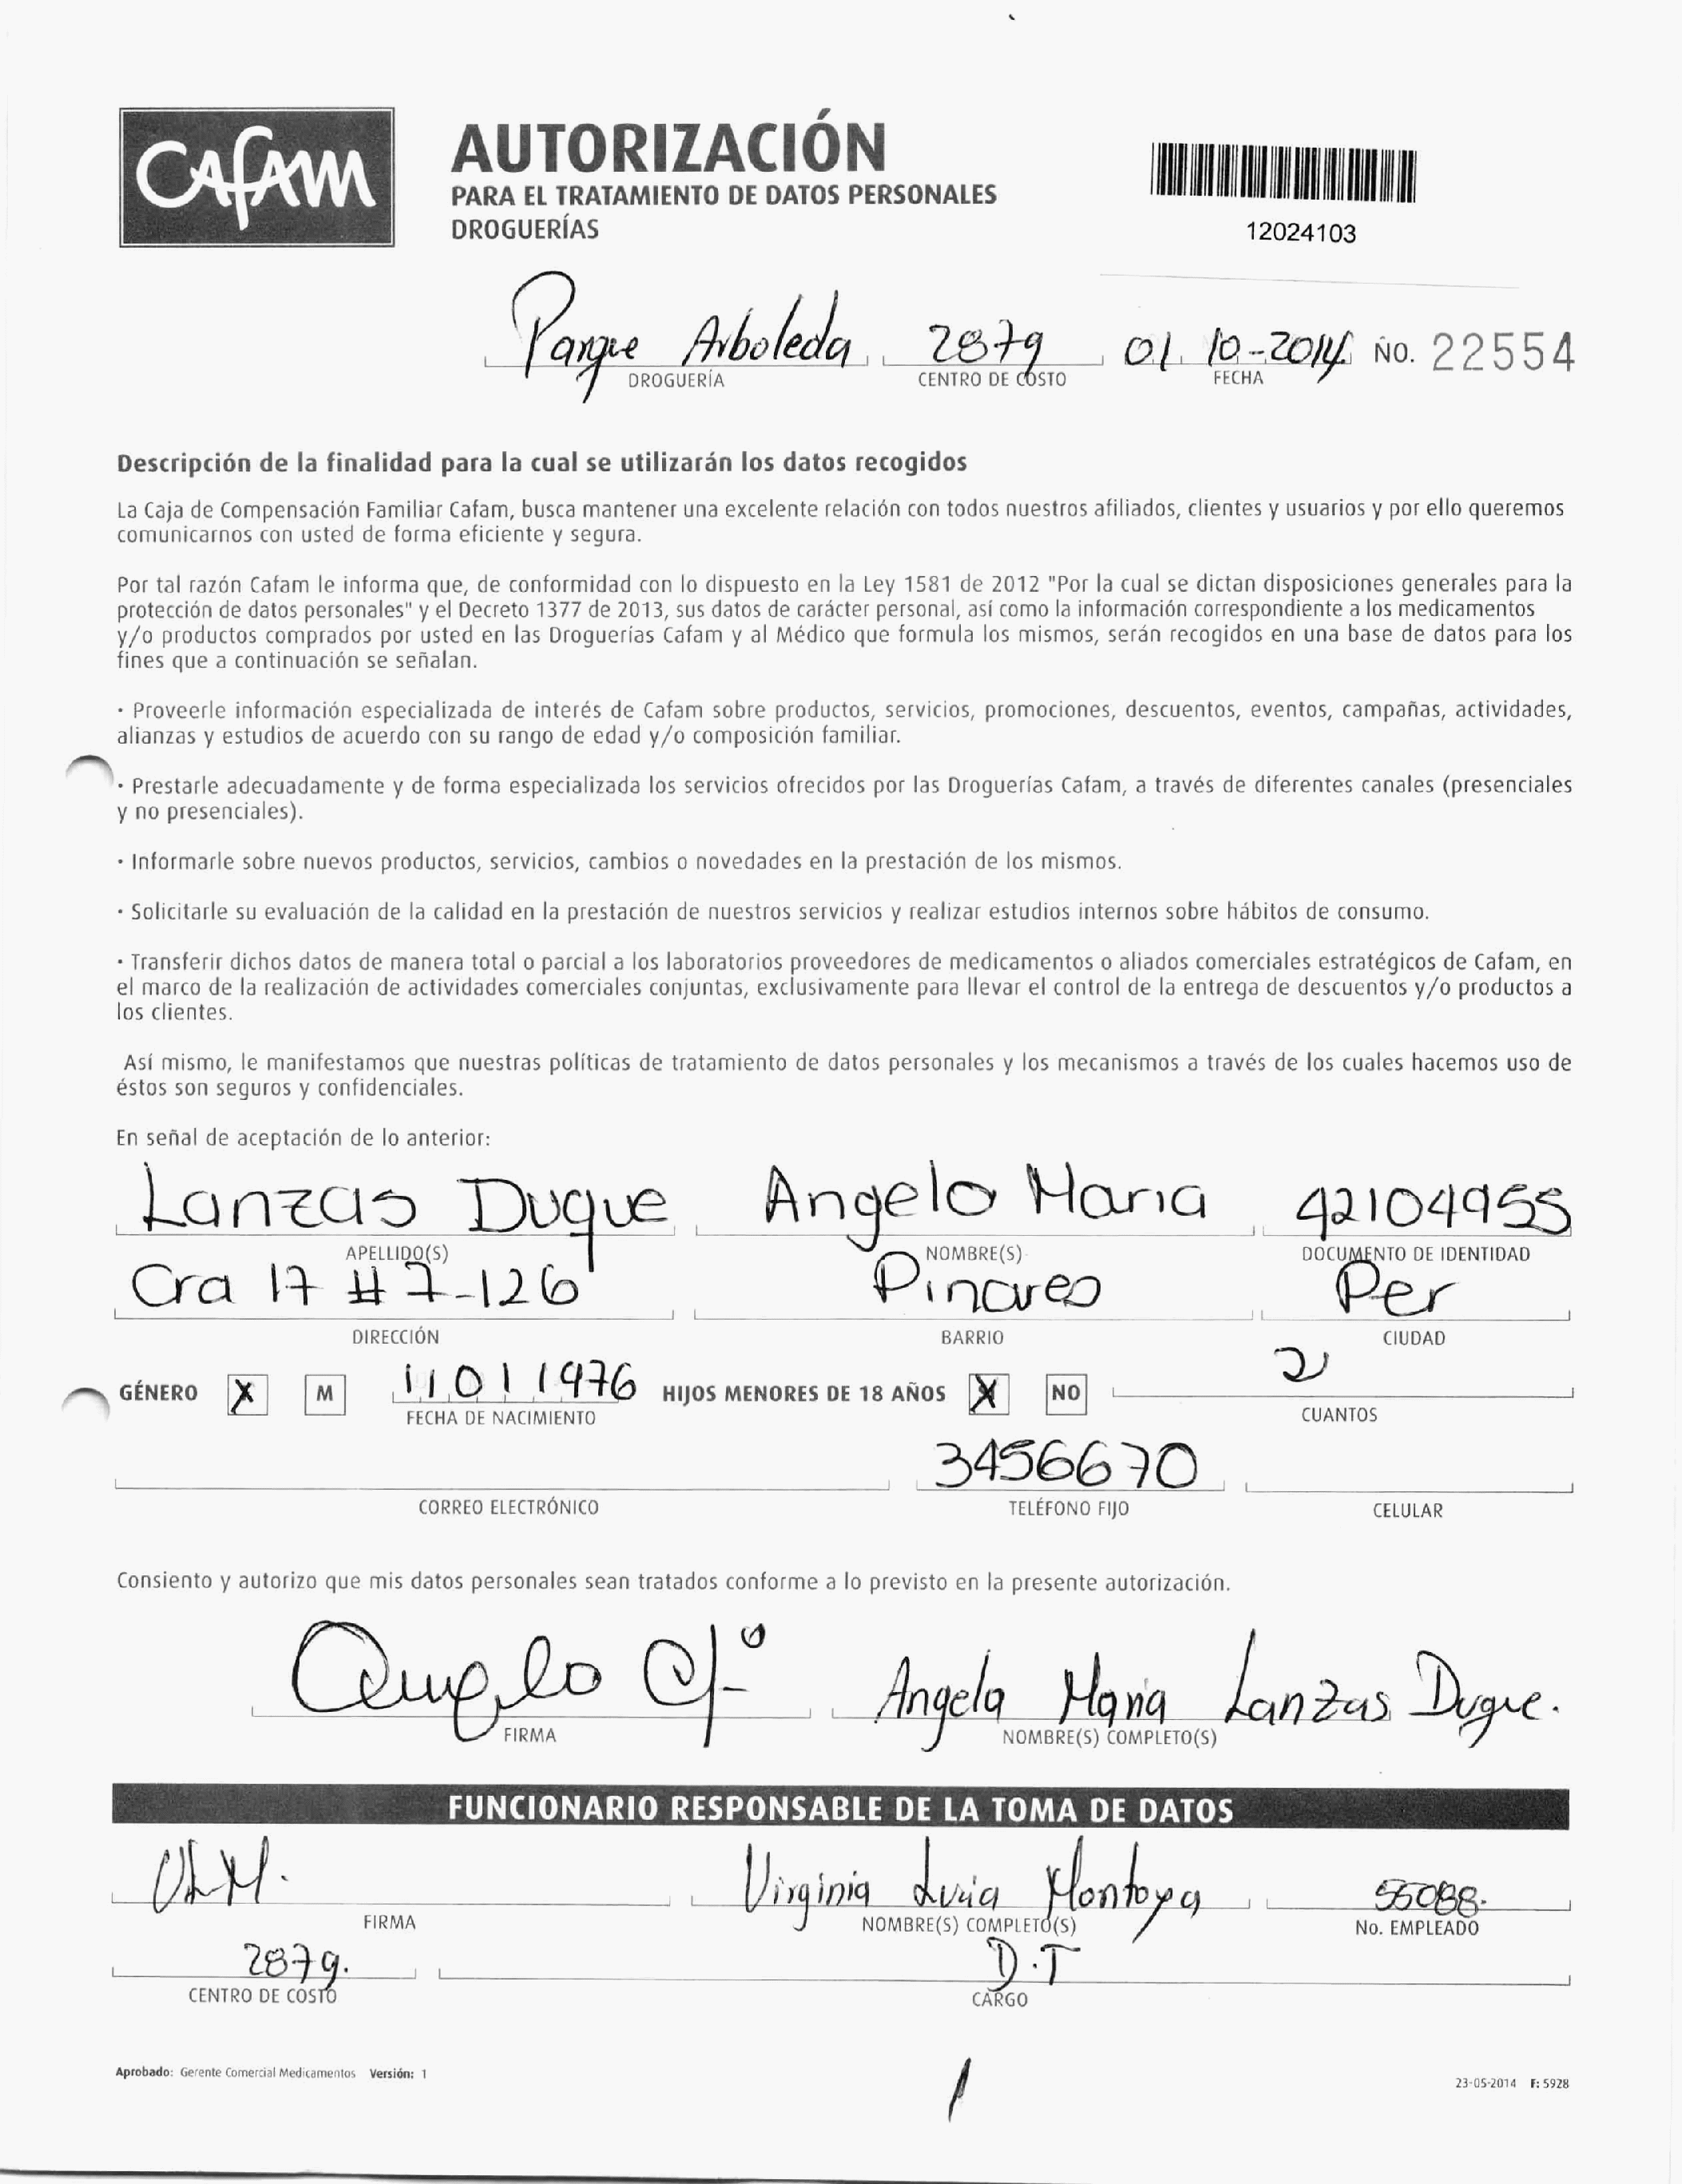 CAFAM
AUTORIZACIÓN
PARA EL TRATAMIENTO DE DATOS PERSONALES
DROGUERÍAS
12024103
Parque Arboleda 2879 01 10-2014 NO. 22554
DROGUERÍA CENTRO DE COSTO FECHA
Descripción de la finalidad para la cual se utilizarán los datos recogidos
La Caja de Compensación Familiar Cafam, busca mantener una excelente relación con todos nuestros afiliados, clientes y usuarios y por ello queremos
comunicarnos con usted de forma eficiente y segura.
Por tal razón Cafam le informa que, de conformidad con lo dispuesto en la Ley 1581 de 2012 "Por la cual se dictan disposiciones generales para la
protección de datos personales" y el Decreto 1377 de 2013, sus datos de carácter personal, así como la información correspondiente a los medicamentos
y/o productos comprados por usted en las Droguerías Cafam y al Médico que formula los mismos, serán recogidos en una base de datos para los
fines que a continuación se señalan.
· Proveerle información especializada de interés de Cafam sobre productos, servicios, promociones, descuentos, eventos, campañas, actividades,
alianzas y estudios de acuerdo con su rango de edad y/o composición familiar.
· Prestarle adecuadamente y de forma especializada los servicios ofrecidos por las Droguerías Cafam, a través de diferentes canales (presenciales
y no presenciales).
· Informarle sobre nuevos productos, servicios, cambios o novedades en la prestación de los mismos.
· Solicitarle su evaluación de la calidad en la prestación de nuestros servicios y realizar estudios internos sobre hábitos de consumo.
· Transferir dichos datos de manera total o parcial a los laboratorios proveedores de medicamentos o aliados comerciales estratégicos de Cafam, en
el marco de la realización de actividades comerciales conjuntas, exclusivamente para llevar el control de la entrega de descuentos y/o productos a
los clientes.
Así mismo, le manifestamos que nuestras políticas de tratamiento de datos personales y los mecanismos a través de los cuales hacemos uso de
éstos son seguros y confidenciales.
En señal de aceptación de lo anterior:
Lanzas Duque Angela Maria 42104955
APELLIDO(S) NOMBRE(S) DOCUMENTO DE IDENTIDAD
Cra 17 # 7-126 Pinares Per
DIRECCIÓN BARRIO CIUDAD
GÉNERO X M 11011976 HIJOS MENORES DE 18 AÑOS X NO 2
FECHA DE NACIMIENTO CUANTOS
3456670
CORREO ELECTRÓNICO TELÉFONO FIJO CELULAR
Consiento y autorizo que mis datos personales sean tratados conforme a lo previsto en la presente autorización.
Angela Maria Lanzas Duque.
FIRMA NOMBRE(S) COMPLETO(S)
FUNCIONARIO RESPONSABLE DE LA TOMA DE DATOS
VLM. Virginia Lucia Montoya 55088.
FIRMA NOMBRE(S) COMPLETO(S) No. EMPLEADO
2879. D.T
CENTRO DE COSTO CARGO
Aprobado: Gerente Comercial Medicamentos Versión: 1
23-05-2014 F: 5928